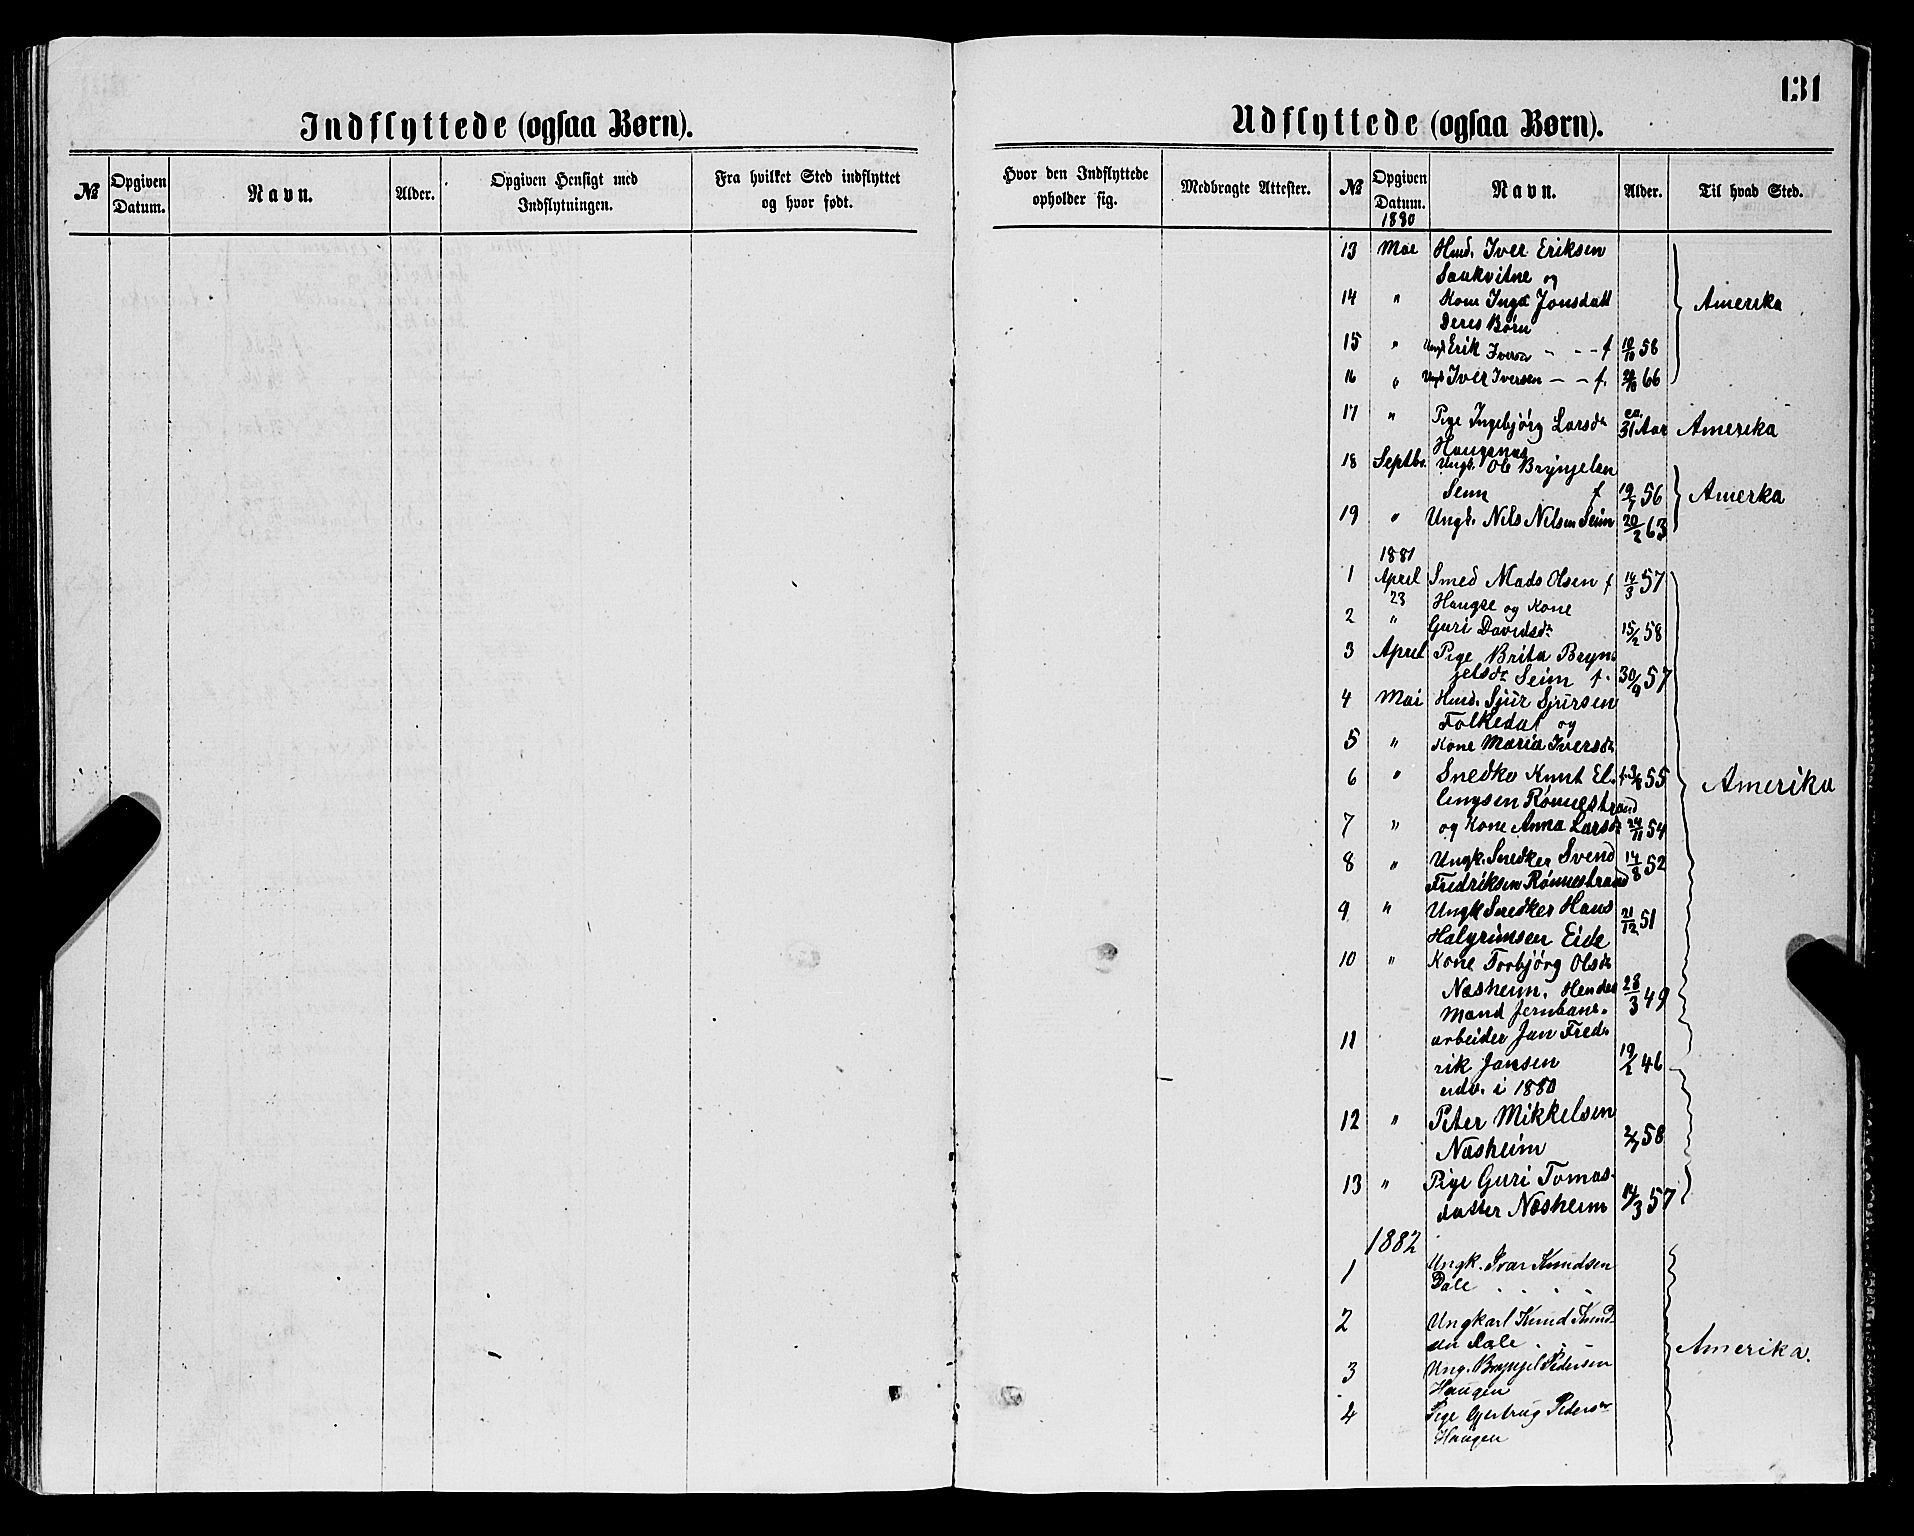 131
Indflyttede (ogsaa Børn).
Udflyttede (ogsaa Børn).
№ Opgiven Datum. Navn. Alder. Opgiven Hensigt med Indflytningen. Fra hvilket Sted indflyttet og hvor født.
Hvor den Indflyttede opholder sig. Medbragte Attester. № Opgiven Datum. Navn. Alder. Til hvad Sted.
1880
13 Mai Huusd. Iver Eriksen
Saakvitne og
14 " Kone Inga Jonsdatt Amerika
Deres Børn
15 " Ungk Erik Iversen - - - f 10/10 58
16 " Ungk Iver Iversen - - f. 66
17 " Pige Ingebjørg Larsdr ca. 31 Aar Amerika
Haugenæs
18 Septbr. Ungk. Ole Brynjelsen
Seim f 19/7 56 Amerka
19 " Ungk. Nils Nilsen Seim 20/2 63
1881
1 April Smed Mads Olsen f 14/3 57
23 Haugse og Kone
2 " Guri Davidsdr 15/2 58
3 April Pige Brita Bryn-
jelsdr Seim f. 30/9 57
4 Mai Huusd. Sjur Sjursen
Folkedal og
5 " Kone Maria Iversdr
6 " Snedke Knut El- 55 Amerika
lingsen Rønnestrand
7 " og Kone Anna Larsdr 24/11 54
8 " Ungk. Snedker Svend 14/8 52
Fredriksen Rønnestrand
9 " Ungk Snedker Hans 21/12 51
Halgrimsen Eide
10 " Kone Torbjørg Olsdr
Næsheim. Hendes 28/3 49
Mand Jernbane-
11 arbeider Jan Fred-
rik Jansen 19/2 46
udv. i 1880
12 " Peter Mikkelsen
Næsheim 2/7 58
13 " Pige Guri Tomas-
datter Næsheim 14/3 57
1882
1 Ungk. Ivar Knudsen
Dale . . . .
2 Ungkarl Knud Knud-
sen Dale . . Amerika.
3 Ung. Brynjel Pedersen
Haugen
4 Pige Gjertrug Pedersdr
Haugen